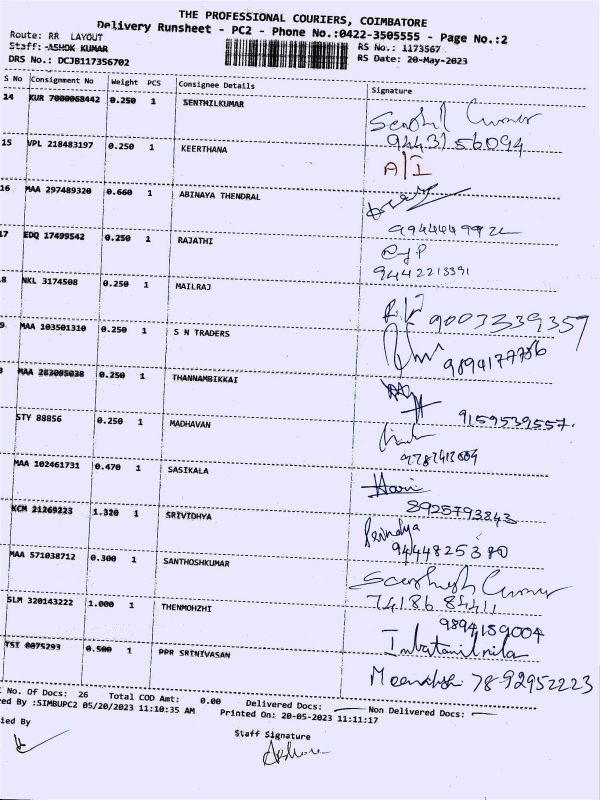 THE PROFESSIONAL COURIERS, COIMBATORE
Delivery Runsheet - PC2 - Phone No.:0422-3505555 - Page No.:2
Route: RR LAYOUT
Staff: ASHOK KUMAR RS No.: 1173567
DRS No.: DCJB117356702 RS Date: 20-May-2023
S No Consignment No Weight PCS Consignee Details Signature
14 KUR 7000068442 0.250 1 SENTHILKUMAR Senthil Cumar
9443156094
15 VPL 218483197 0.250 1 KEERTHANA A/I
16 MAA 297489320 0.660 1 ABINAYA THENDRAL
17 EDQ 17499542 0.250 1 RAJATHI
9442213391
8 NKL 3174508 0.250 1 MAILRAJ 9003339357
9 MAA 103501310 0.250 1 S N TRADERS
MAA 263095038 0.250 1 THANNAMBIKKAI 9159539557
STY 88856 0.250 1 MADHAVAN
MAA 102461731 0.470 1 SASIKALA Hari
8925793843
KCM 21269223 1.320 1 SRIVIDHYA
9444825380
MAA 571038712 0.300 1 SANTHOSHKUMAR
7418684411
SLM 320143222 1.000 1 THENMOHZHI 9894189004
Inbatamilnila
TSI 8075293 0.500 1 PPR SRINIVASAN 7892952223
No. Of Docs: 26 Total COD Amt: 0.00 Delivered Docs: Non Delivered Docs:
red By :SIMBUPC2 05/20/2023 11:10:35 AM Printed On: 20-05-2023 11:11:17
ied By Staff Signature